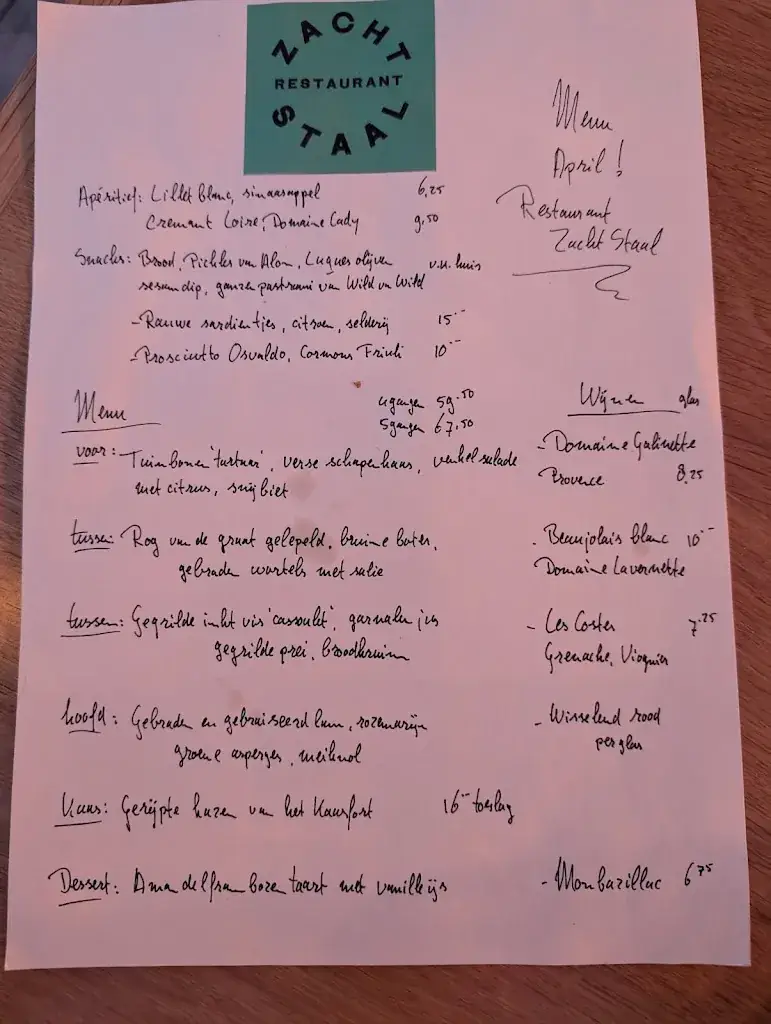 ZACHT
RESTAURANT
STAAL
Menu
April !
Restaurant
Zacht Staal
Apéritief: Lillet blanc, sinaasappel 6,25
Cremant Loire, Domaine Cady 9,50
Snacks: Brood, Pickles van Alon, Luques olijven v.h. huis
sesamdip, ganzenpastrami van Wild vn Wild
- Rauwe sardientjes, citroen, selderij 15--
- Prosciutto Osvaldo, Cormons Friuli 10--
Menu
4gangen 59.50
5gangen 67,50
Wijnen glas
voor: Tuinbonen 'tartaar', verse schapenkaas, venkel salade
met citrus, snijbiet
- Domaine Galinette
Provence 8,25
tussen: Rog van de graat gelepeld, bruine boter,
gebraden wortels met salie
- Beaujolais blanc 10--
Domaine Lavernette
tussen: Gegrilde inkt vis 'cassoulet', garnalen jus
gegrilde prei, broodkruim
- Les Costes 7.25
Grenache, Viognier
hoofd: Gebraden en gebraiseerd lam, rozemarijn
groene asperges, meiknol
- Wisselend rood
per glas
Kaas: Gerijpte kazen van het Kaasfort 16-- toeslag
Dessert: Amandelframbozentaart met vanilleijs
- Monbazillac 6 75